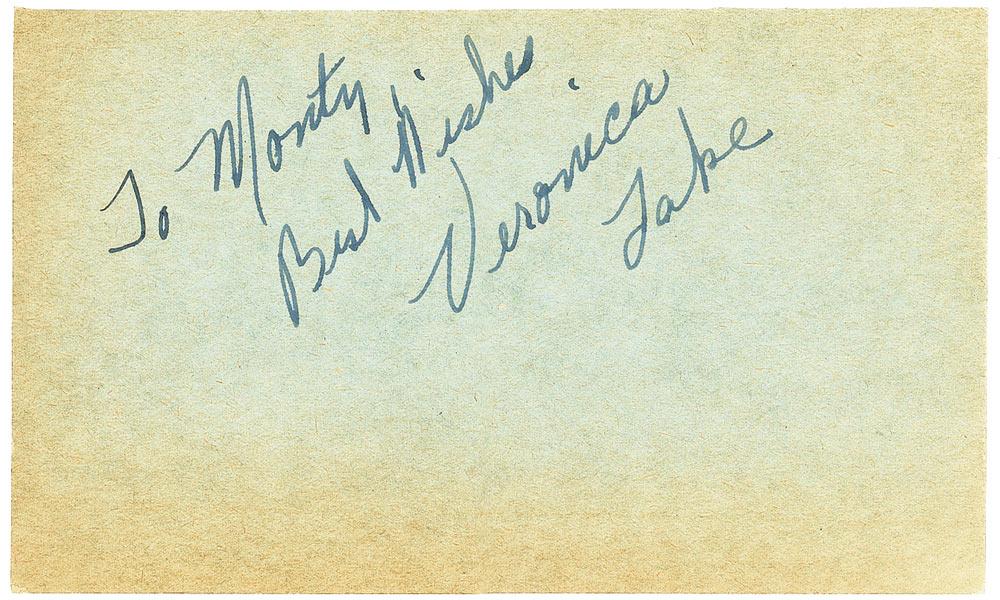 To Monty
Best Wishes
Veronica
Lake